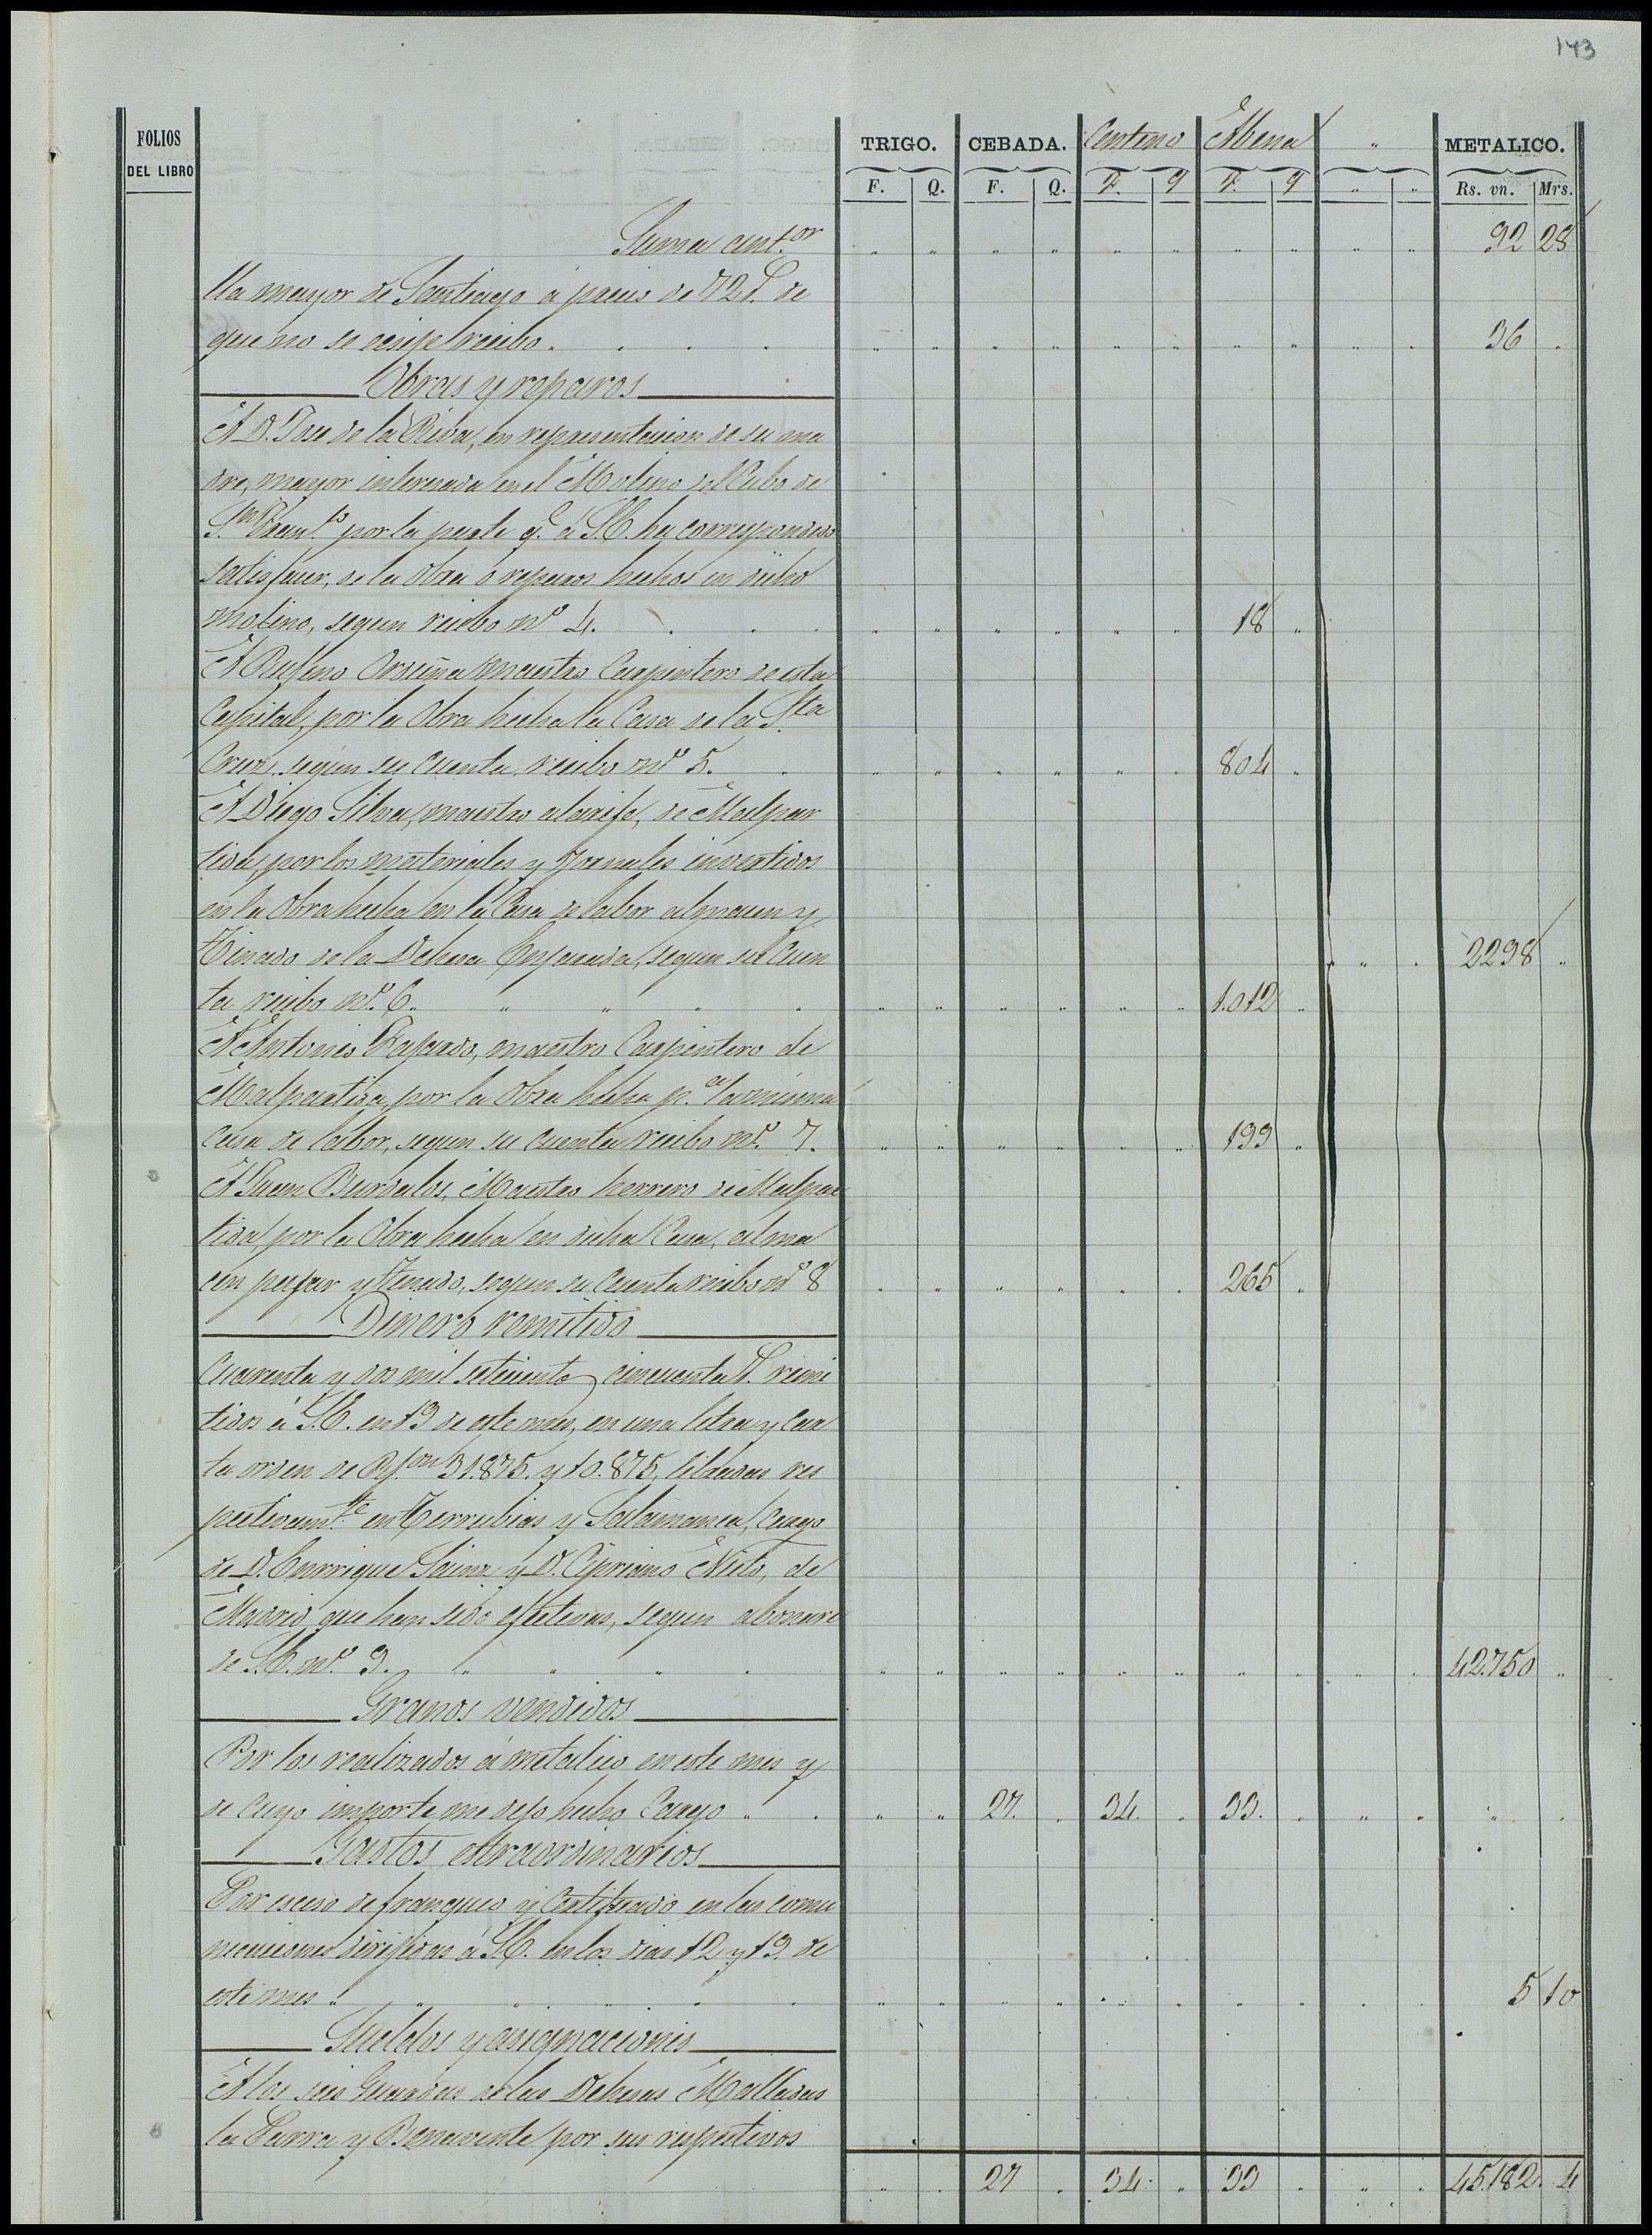 143
FOLIOS DEL LIBRO TRIGO. CEBADA. Centeno Abena " METALICO.
F. Q. F. Q. F. Q F. Q " " Rs. vn. Mrs.
Suma ant.or " " " " " " " " " " 92 28
lla mayor de Santiago á precio de 72 r.s de
que no se exije recibo . . . " " " " " " " " " " 36 "
Obras y reparos
A D. Jose de la Riva, en representacion de su ma
dre, mayor interesada en el Molino del Cubo de
S.n Fran.co por la parte q.e á S.E. ha correspondido
satisfacer, de la obra ó reparos hechos en dicho
molino, segun recibo nº 4. . . . " " " " " " 18 "
A Rufino Orduña maestro Carpintero de esta
Capital, por la Obra hecha la Casa de la S.ta
Cruz, segun su cuenta recibo nº 5. . " " " " " " 804 "
A Diego Silva, maestro alarife, de Malpar
tida, por los materiales y jornales invertidos
en la Obra hecha en la Casa de labor almacen y
Tinado de la Dehesa segun su Cuen " " 2298 "
ta recibo nº 6. " " " " " " " " " " 1.012 "
A Antonio maestro Carpintero de
Malpartida por la Obra hecha p.a la misma
Casa de labor, segun su cuenta recibo nº 7. " " " " " " 199 "
A Juan Burdalos, Maestro herrero de Malpar
tida, por la Obra hecha en dicha Casa, alma
cen pajar y tinado, segun su cuenta recibo nº 8 " " " " " " 265 "
Dinero remitido
Cuarenta y dos mil setecientos cincuenta r.s remi
tidos á S.E. en 19 de este mes, en una letra y car
ta orden de R.s on 31.875. y 10.875, libradas res
pectivam.te en Terrubias y Salamanca, cargo
de D. Enrrique Sainz y D. Cipriano Nieto, de
Madrid que han sido efectivas, segun abonare
de S.E. nº 9. " " " " " " " " " " " " " " 42.750 "
Granos vendidos
Por los realizados á metalico en este mes y
de cuyo importe me dejo hecho Cargo " . " " 27. " 34. " 33. " " " " "
Gastos estraordinarios
Por esceso de franqueo y Certificado en las comu
nicaciones dirijidas á S.E. en los dias 12 y 19 de
este mes " " " " " " " " " " " " " " 5 10
Sueldos y asignaciones
A los seis Guardas de las Dehesas Malladas
la Parra y Benavente por sus respectivos
" " 27 " 34. " 33 " " " 45.182. 4